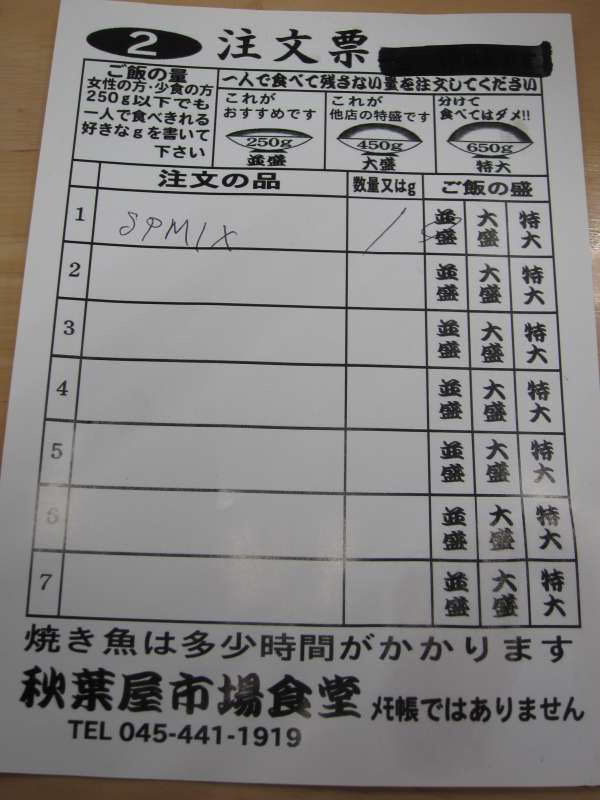 2 注文票
ご飯の量
女性の方・少食の方
250g以下でも
一人で食べきれる
好きなgを書いて
下さい
一人で食べて残さない量を注文してください
これが
おすすめです
250g
並盛
これが
他店の特盛です
450g
大盛
分けて
食べてはダメ!!
650g
特大
注文の品 数量又はg ご飯の盛
1 SPMIX 1 並盛 大盛 特大
2 並盛 大盛 特大
3 並盛 大盛 特大
4 並盛 大盛 特大
5 並盛 大盛 特大
6 並盛 大盛 特大
7 並盛 大盛 特大
焼き魚は多少時間がかかります
秋葉屋市場食堂 メモ帳ではありません
TEL 045-441-1919